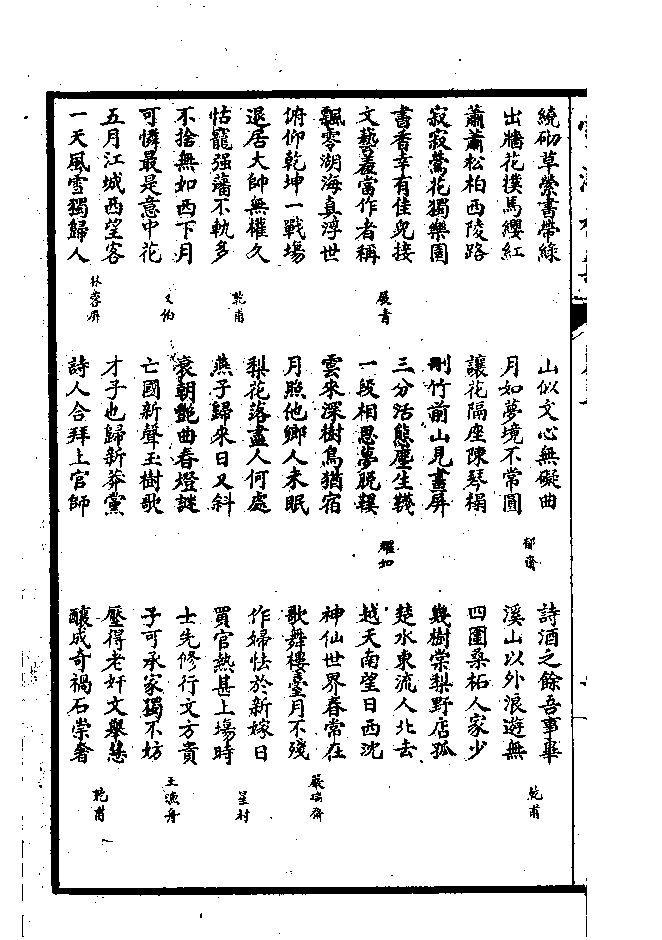 繞砌草縈書帶綠
出牆花撲馬纓紅
蕭蕭松柏西陵路
寂寂鶯花獨樂園
書香幸有佳兒接
文藝叢當作者稱
展青
飄零湖海真浮世
俯仰乾坤一戰場
退居大帥無權久
怙寵强藩不軌多
乾甫
不捨無如西下月
可憐最是意中花
又伯
五月江城西望客
一天風雪獨歸人
林蓉屏
山似文心無礙曲
月如夢境不常圓
郁齋
讓花隔座陳琴榻
刪竹前山見畫屏
三分活態塵生韈
一段相思夢脫鞵
耀如
雲來深樹鳥猶宿
月照他鄉人未眠
梨花落盡人何處
燕子歸來日又斜
衰朝艷曲春燈謎
亡國新聲玉樹歌
才子也歸新莽黨
詩人合拜上官師
詩酒之餘吾事畢
溪山以外浪遊無
乾甫
四圍桑柘人家少
幾樹棠梨野店孤
楚水東流人北去
越天南望日西沈
神仙世界春常在
歌舞樓臺月不殘
嚴瑞齋
作婦怯於新嫁日
買官熱甚上塲時
星村
士先修行文方貴
子可承家獨不妨
王漁舟
壓得老奸文舉慧
釀成奇禍石崇奢
乾甫